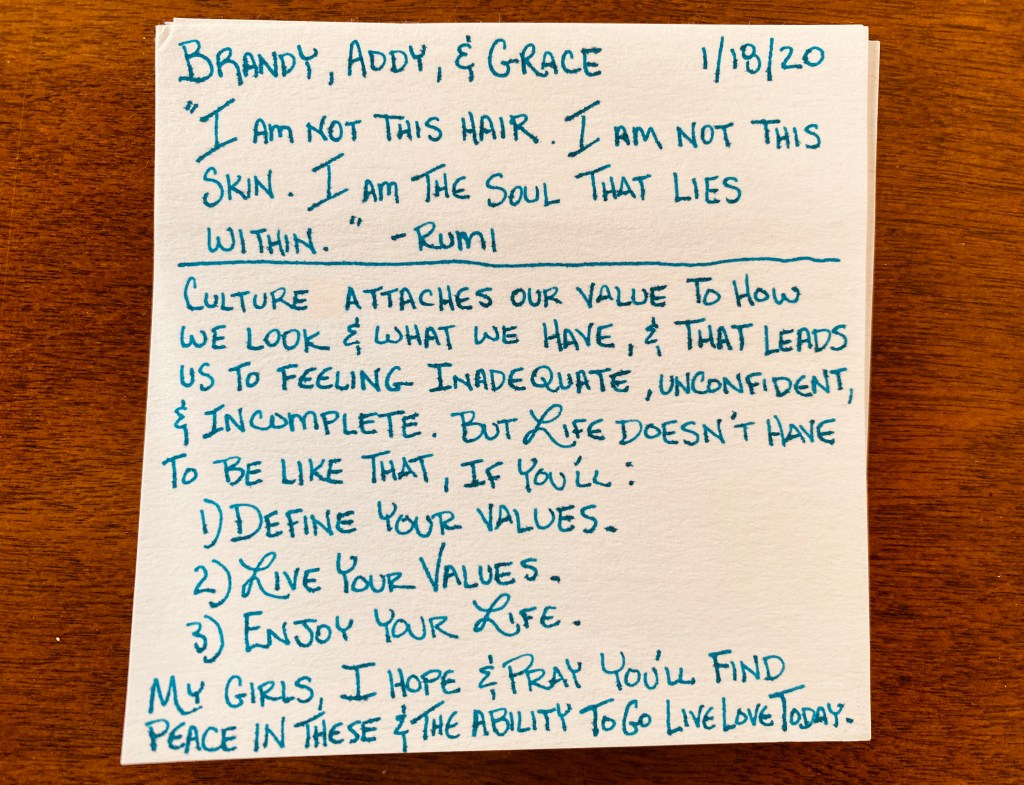 BRANDY, ADDY, & GRACE 1/18/20
"I AM NOT THIS HAIR. I AM NOT THIS
SKIN. I AM THE SOUL THAT LIES
WITHIN." -RUMI
CULTURE ATTACHES OUR VALUE TO HOW
WE LOOK & WHAT WE HAVE, & THAT LEADS
US TO FEELING INADEQUATE, UNCONFIDENT,
& INCOMPLETE. BUT LIFE DOESN'T HAVE
TO BE LIKE THAT, IF YOU'LL:
1) DEFINE YOUR VALUES.
2) LIVE YOUR VALUES.
3) ENJOY YOUR LIFE.
MY GIRLS, I HOPE & PRAY YOU'LL FIND
PEACE IN THESE & THE ABILITY TO GO LIVE LOVE TODAY.